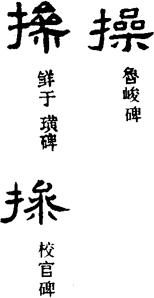 操
魯峻碑
操
鲜于璜碑
操
校官碑